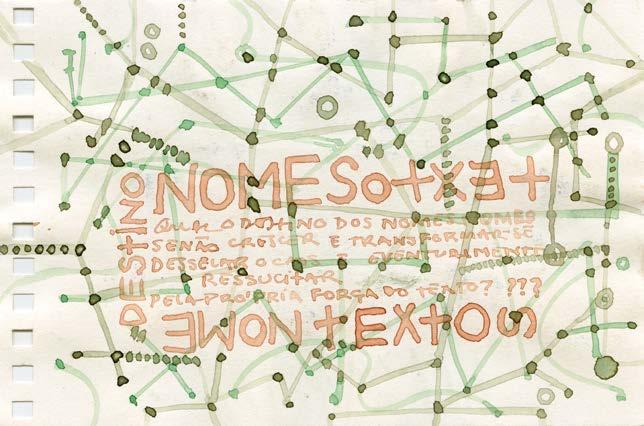 DESTINO
NOMESOTXET
QUAL O DESTINO DOS NOMES NOMES
SENÃO CRESCER E TRANSFORMAR-SE
DESSECAR E EVENTUALMENTE
RESSUCITAR
PELA PRÓPRIA FORÇA DO TEMPO? ???
EMONTEXTOS